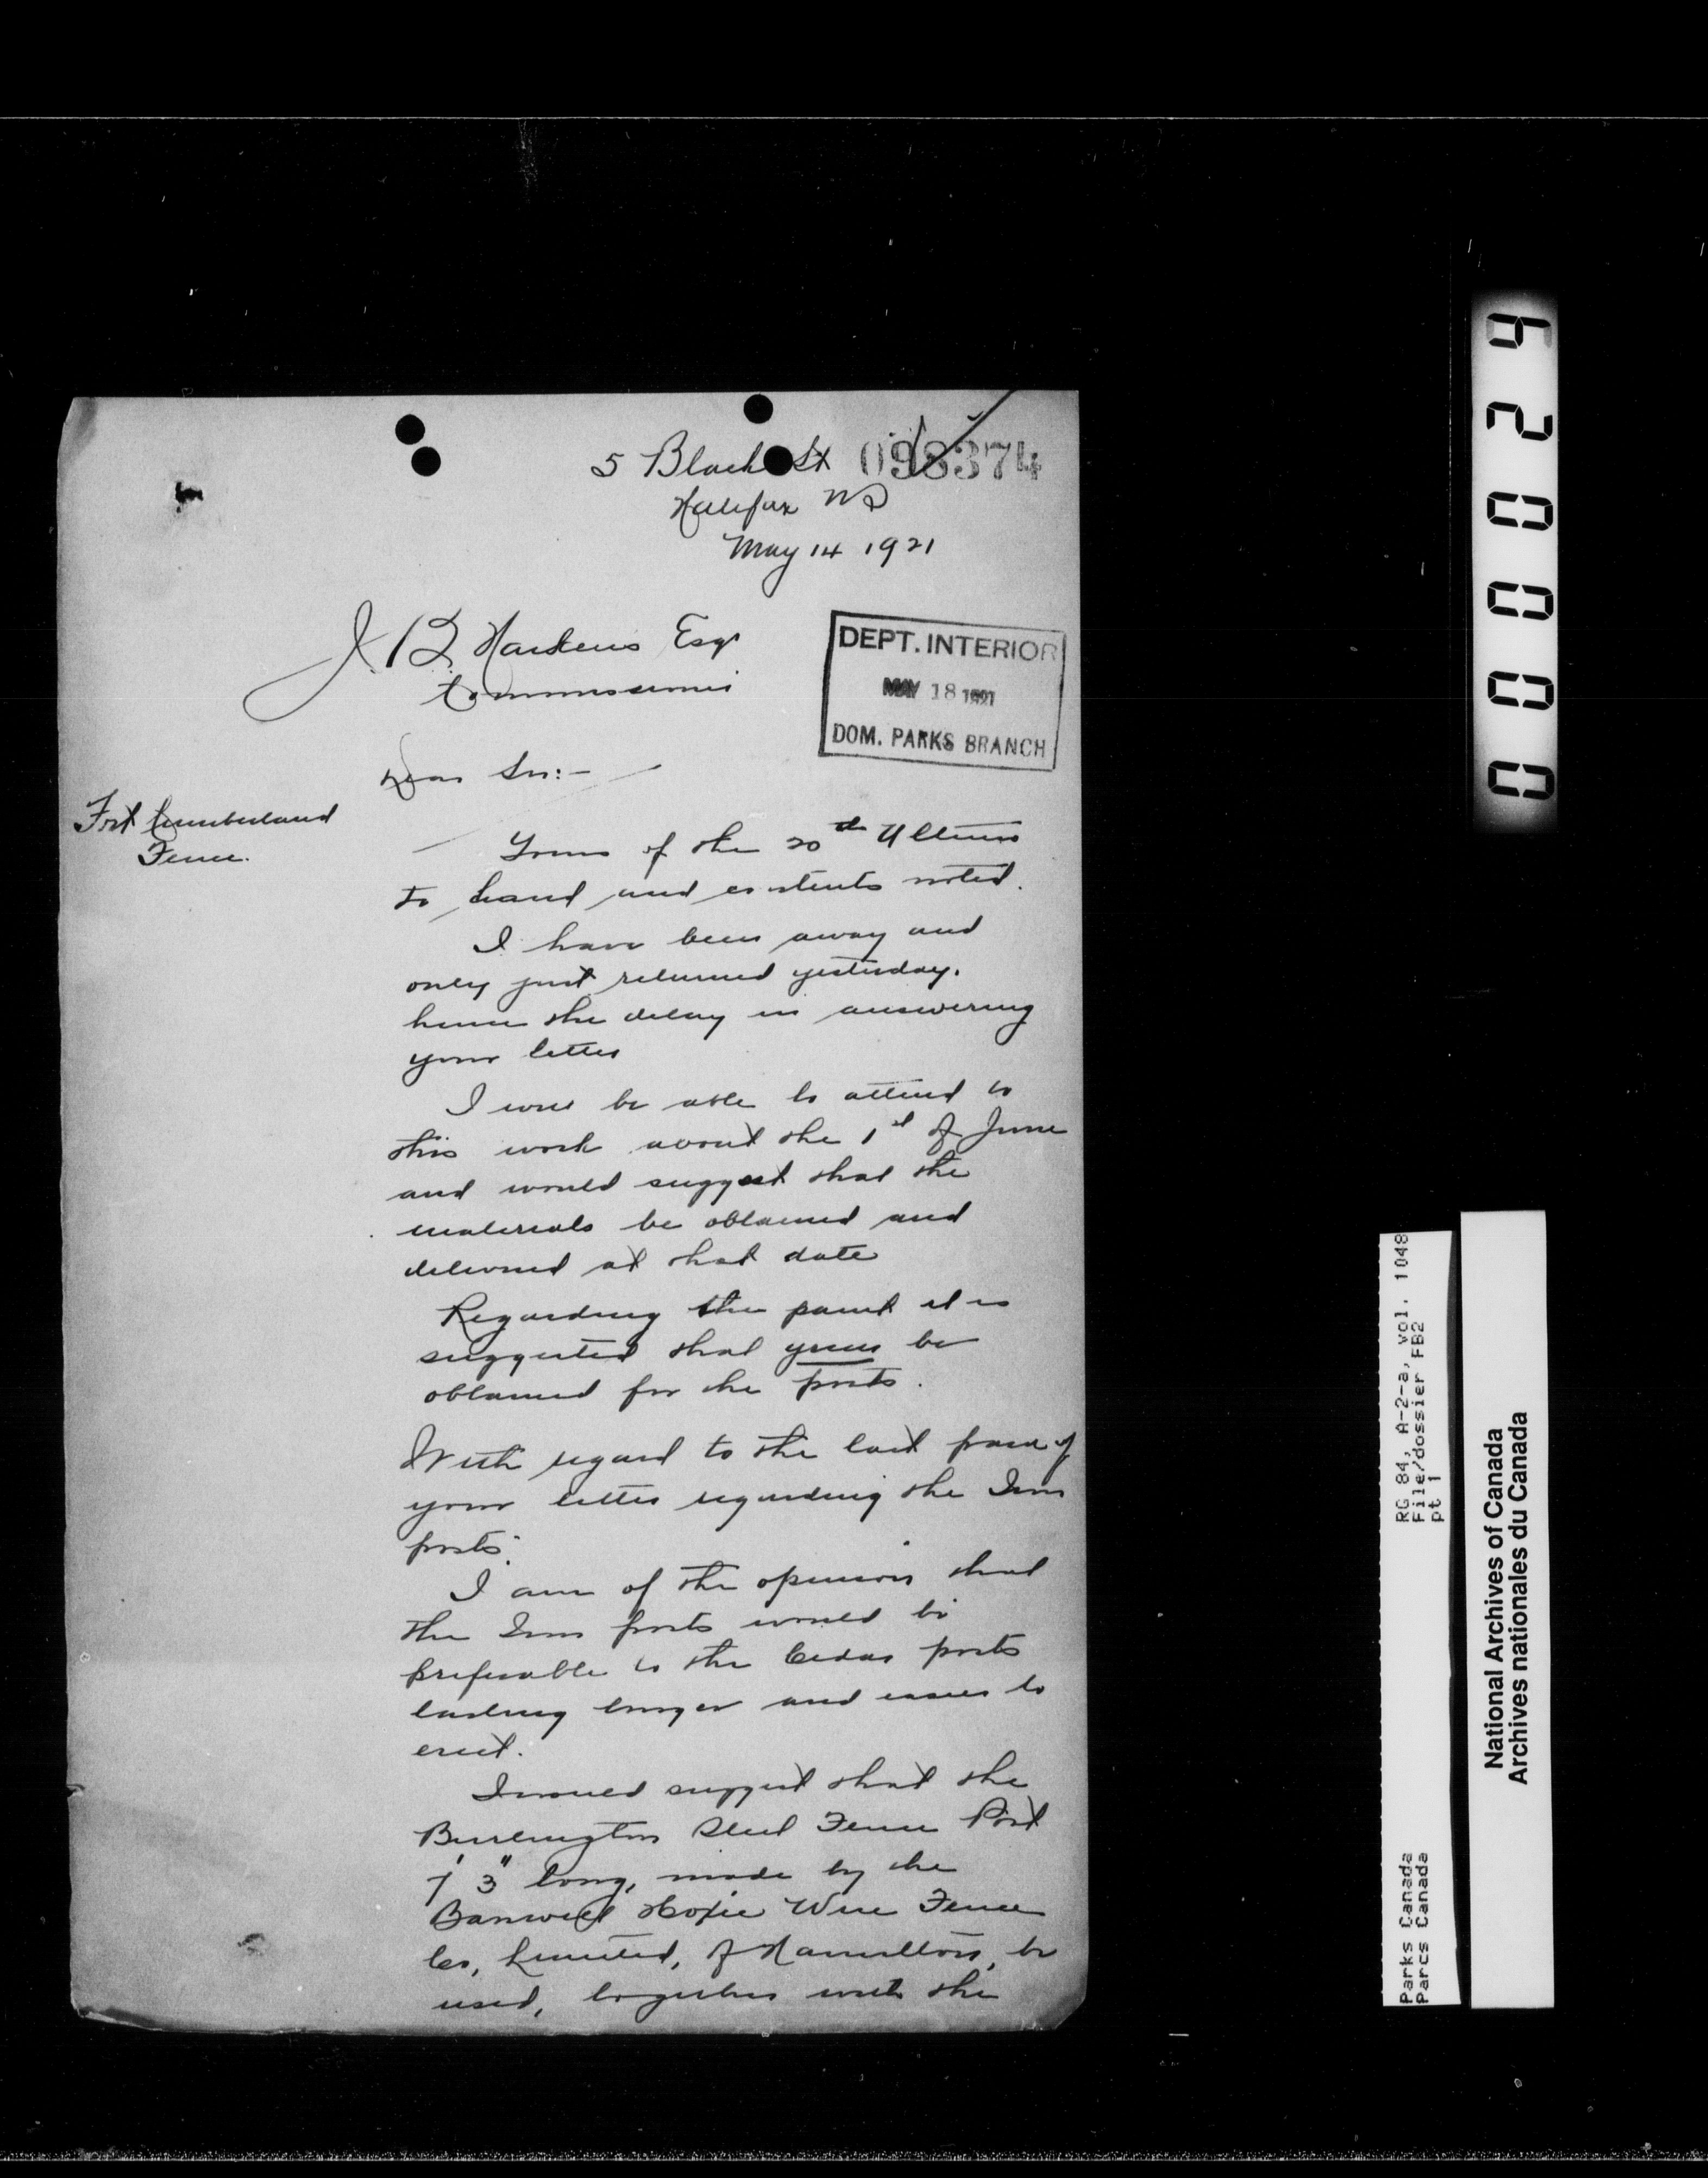 5 Black St 098374
Halifax NS
May 14 1921
J B Harkins Esqr
Commissioner
DEPT. INTERIOR
MAY 18 1921
DOM. PARKS BRANCH
Dear Sir:-
Fort Cumberland
Fence.
Yours of the 20th Ultimo
to hand and contents noted.
I have been away and
only just returned yesterday.
hence the delay in answering
your letter
I will be able to attend to
this work about the 1st of June
and would suggest that the
materials be obtained and
delivered at that date
Regarding the paint it is
suggested that green be
obtained for the posts.
With regard to the last para of
your letter regarding the Iron
posts.
I am of the opinion that
the Iron posts would be
preferable to the Cedar posts
lasting longer and easier to
erect.
I would suggest that the
Burlington Steel Fence Post
7' 3" long, made by the
Banwell Hoxie Wire Fence
Co, Limited, of Hamilton, be
used, together with the
000024
RG 84, A-2-a, vol. 1048
File/dossier FB2
pt 1
Parks Canada
Parcs Canada
National Archives of Canada
Archives nationales du Canada